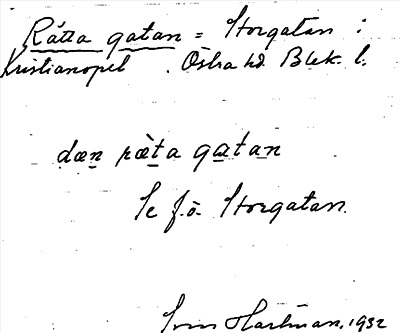 Rätta gatan = Storgatan i
Kristianopel. Östra hd Blek. l.
dæn ræta gatan
Se f.ö. Storgatan.
Hartman, 1932